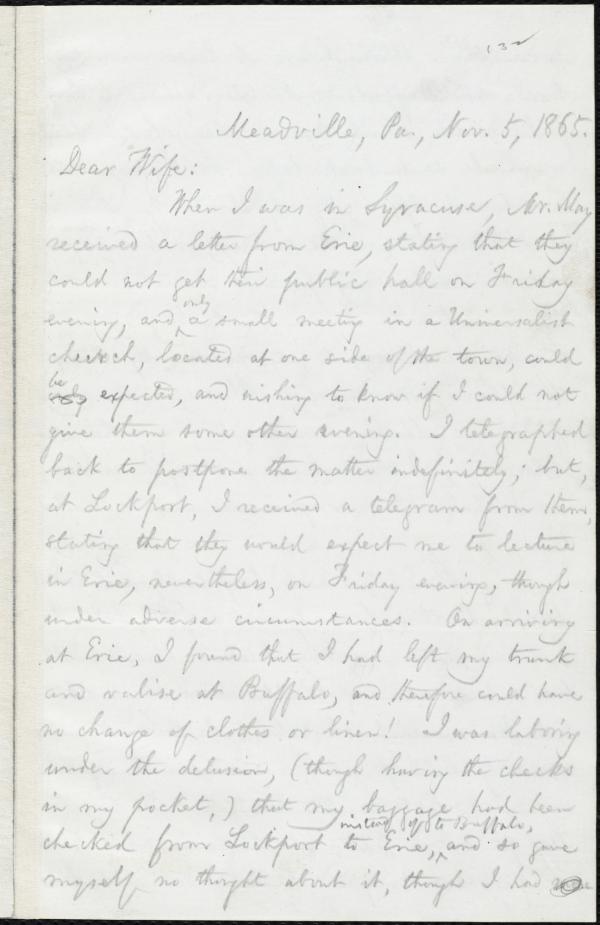 132
Meadville, Pa., Nov. 5, 1865.
Dear Wife:
When I was in Syracuse, Mr. May
received a letter from Erie, stating that they
could not get their public hall on Friday
evening, and only a small meeting in a Universalist
church, located at one side of the town, could
be expected, and wishing to know if I could not
give them some other evening. I telegraphed
back to postpone the matter indefinitely; but,
at Lockport, I received a telegram from them,
stating that they would expect me to lecture
in Erie, nevertheless, on Friday evening, though
under adverse circumstances. On arriving
at Erie, I found that I had left my trunk
and valise at Buffalo, and therefore could have
no change of clothes or linen! I was laboring
under the delusion, (though having the checks
in my pocket,) that my baggage had been
checked from Lockport to Erie, instead of to Buffalo, and so gave
myself no thought about it, though I had